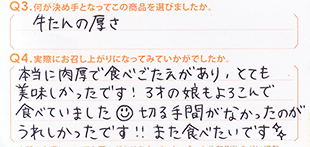 Q3.何が決め手となってこの商品を選びましたか。
牛たんの厚さ
Q4.実際にお召し上がりになってみていかがでしたか。
本当に肉厚で食べごたえがあり、とても
美味しかったです！3才の娘もよろこんで
食べていました 切る手間がなかったのが
うれしかったです!!また食べたいです